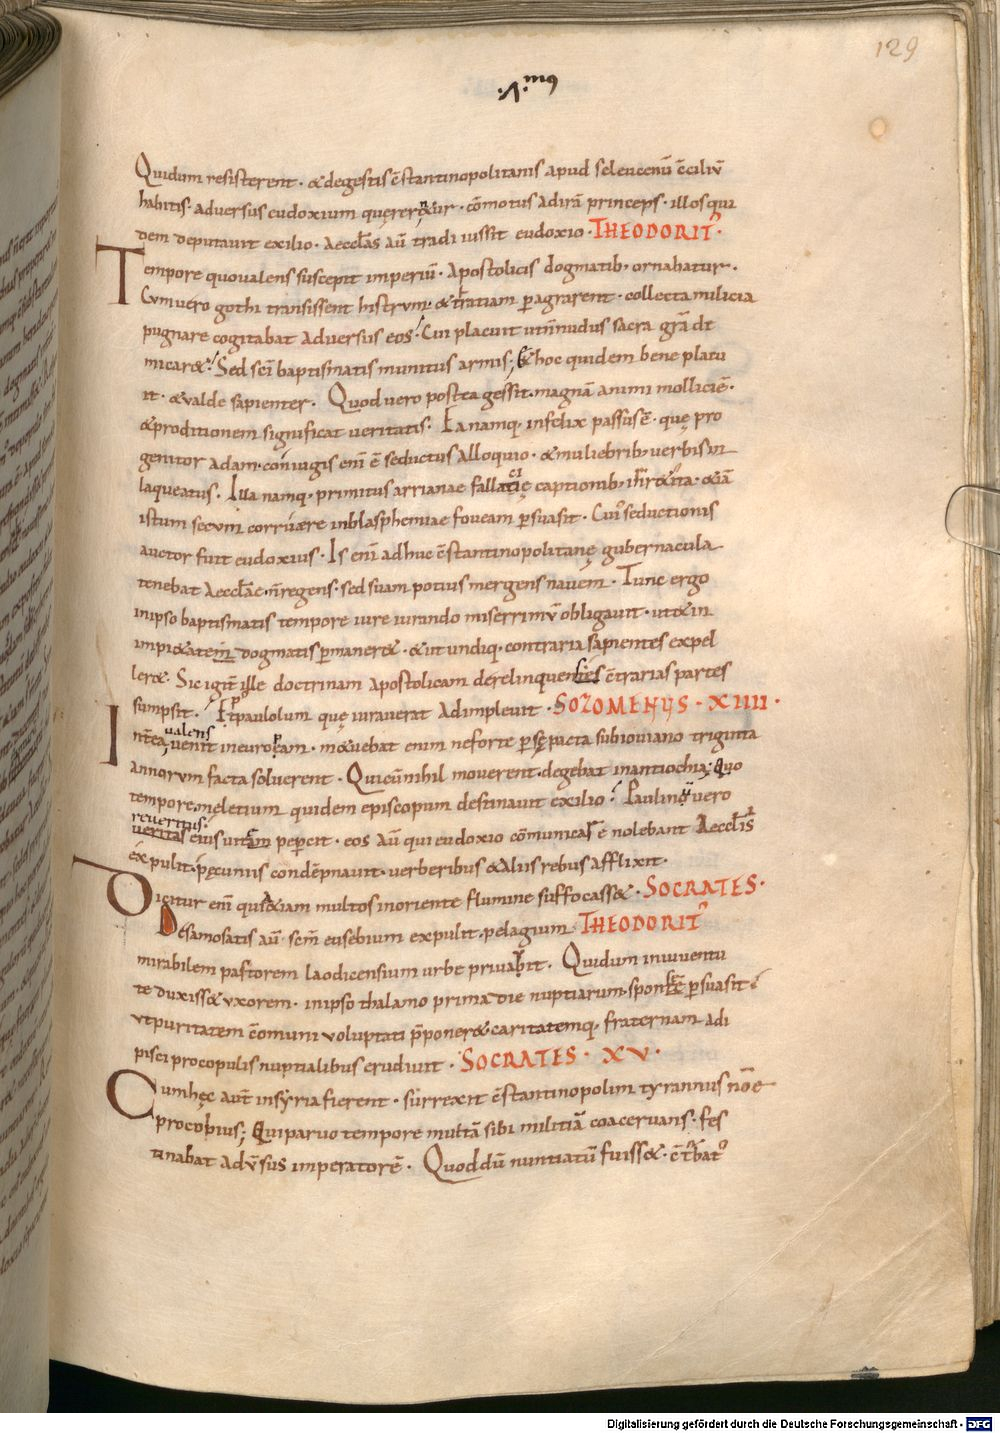 129
Quidum resisterent· & degestis c̄stantinopolitanis apud seleuceniū c̄ciliū
habitis· adversus eudoxium quęrer&ur· cōmotus adirā princeps· illos qui
dem deputavit exilio· Aeccl̄as aū tradi iussit eudoxio· THEODORIT᾽·
Tempore quo valens suscepit imperiū· Apostolicis dogmatib· ornabatur·
Cum vero gothi transissent histrum· & tratiam p̱agrarent· collecta milicia
pugnare cogitabat adversus eos· Cui placuit ut n̄ nudus sacra gr̄a di
micar&· Sed sc̄i baptismatis munitus armis; & hoc quidem bene placu
it· & valde sapienter· Quod vero postea gessit· magnā animi molliciē·
& proditionem significat veritatis· Eanamq· infelix passus ē· quę pro
genitor adam· coniugis eni ē seductus alloquio· & muliebrib· verbis in
laqueatus· Illa namq· primitus arrianae fallacię captionib· irr&ita· & iā
istum secum corruere in blasphemiae foveam p̱suasit· Cui᾽ seductionis
auctor fuit eudoxius· Is eni adhuc c̄stantinopolitanę gubernacula
tenebat Aeccl̄ae· n̄ regens· sed suam potius mergens navem· Tunc ergo
in ipso baptismatis tempore iure iurando miserrimū obligavit· ut & in
impi&atem dogmatis p̱maner&· & ut undiq· contraria sapientes expel
ler&· Sic igit᾽ ille doctrinam apostolicam derelinquens c̄trarias partes
sumpsit· Et p᾽ paulolum quę iuraverat adimplevit· SOZOMENUS· XIIII·
valens
Interea venit in europam· m&uebat enim ne forte p̱ sę pacta sub ioviano triginta
annorum facta solverent· Qui cū nihil moverent· degebat in antiochia; Quo
tempore meletium quidem episcopum destinavit exilio· Paulinū vero
reveritus·
veritas eius vitam pepercit· eos aū qui eudoxio cōmunicare nolebant Aeccl̄iis
expulit· pęcuniis condēpnavit· verberibus & aliis rebus afflixit·
Dicitur eni quia &iam multos in oriente flumine suffocass&· SOCRATES·
De samosatis aū· sc̄m eusebium expulit· pelagium THEODORIT᾽
mirabilem pastorem laodicensium urbe privavit· Qui dum in iuventu
te duxiss& uxorem· in ipso thalamo prima die nuptiarum· sponsae p̱suasit
ut puritatem c̄muni voluptati p̄poner& caritatemq· fraternam adi
pisci procopulis nuptialibus erudivit· SOCRATES· XV·
Cum hęc aut̄ in syria fierent· surrexit c̄stantinopolim tyrannus nōe
procopius; Qui parvo tempore multā sibi militiā coacervans· fes
tinabat advsus imperatorē· Quod dū nuntiatū fuiss&· c̄t᾽bat᾽
Digitalisierung gefördert durch die Deutsche Forschungsgemeinschaft - DFG